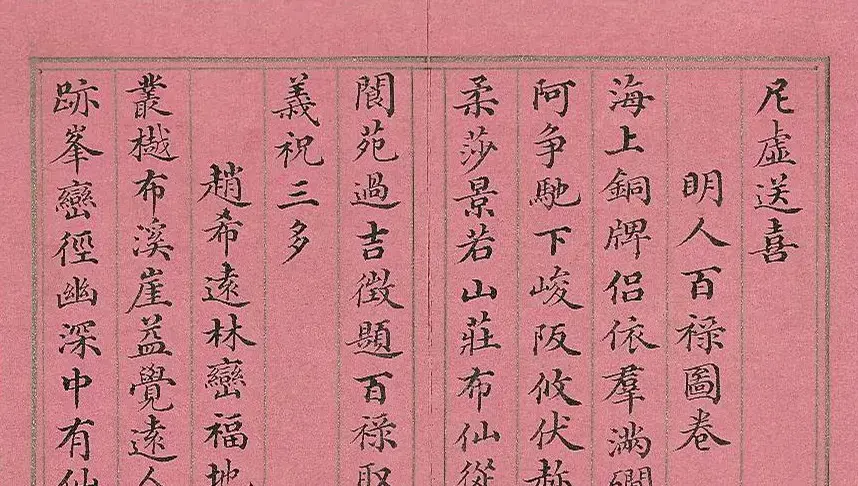 尼虛送喜
明人百祿圖卷
海上銅牌侣依羣滿
阿争馳下峻阪攸伏
柔莎景若山莊布仙從
閬苑過吉徵題百祿
義祝三多
趙希遠林巒福地
叢樾布溪崖益覺遠人
跡峯巒徑幽深中有仙